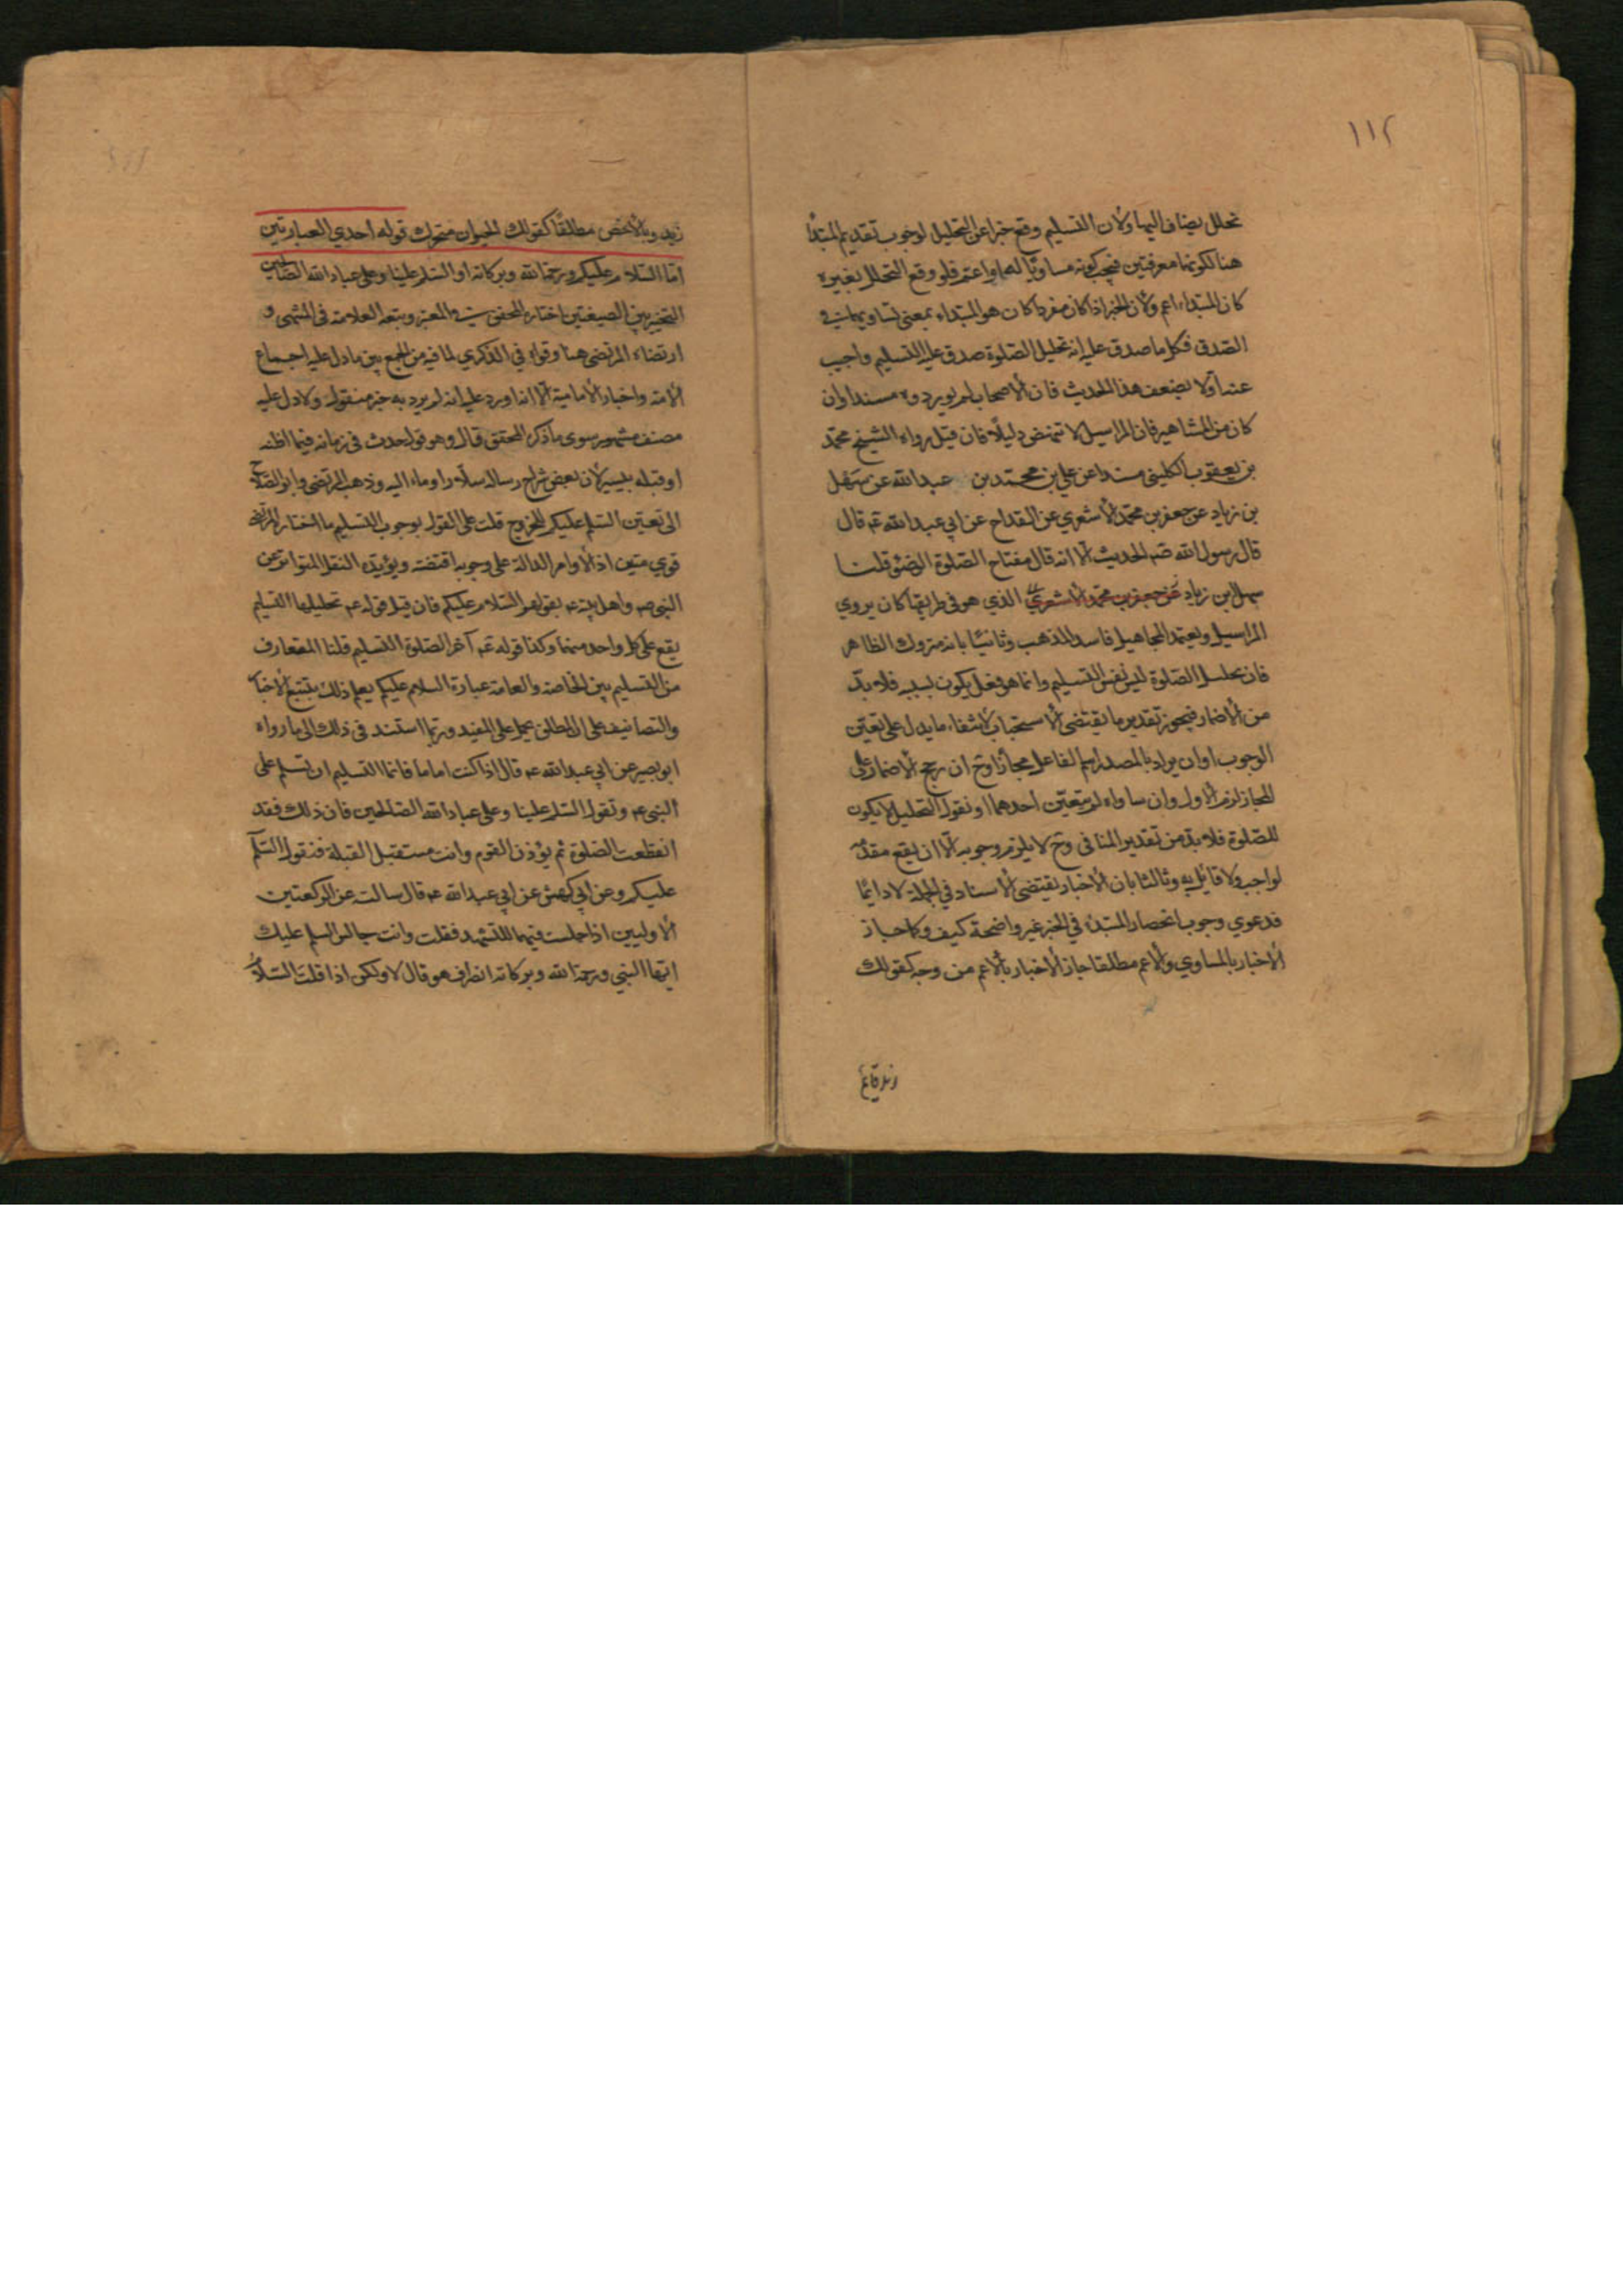 ١١٢
تحلل يضاف اليها ولأن التسليم وقع خبرا عن التحليل لوجوب تقديم المبتدأ
هنا لكونهما معرفتين فيجب كونه مساويا له او اعم فلو وقع التحلل بغيره
كان المبتداء اعم ولأن الخبر اذا كان مفردا كان هو المبتداء بمعنى تساويهما في
الصدق فكل ما صدق عليه انه تحليل الصلوة صدق عليه التسليم واجيب
عنه اولا بضعف هذا الحديث فان الأصحاب لم يوردوه مسندا وان
كان من المشاهير فان المراسيل لا تنهض دليلًا فان قيل رواه الشيخ محمد
بن يعقوب الكليني مسندا عن علي بن محمد بن عبد الله عن سهل
بن زياد عن جعفر بن محمد الأشعري عن القداح عن ابي عبد الله عم قال
قال رسول الله صم الحديث الا انه قال مفتاح الصلوة الوضوء قلنا
سهل بن زياد عن جعفر بن محمد الأشعري الذي هو في طريقها كان يروي
المراسيل ويعتمد المجاهيل فاسد المذهب وثانيًا بانه متروك الظاهر
فان تحليل الصلوة ليس نفس التسليم وانما هو فعل يكون بسببه فلا بد
من الأضمار فيجوز تقدير ما يقتضى الأستحباب لأنتفاء ما يدل على تعين
الوجوب او ان يراد بالمصدر اسم الفاعل مجازا وح ان رجح الأضمار على
المجاز لزم الأول وان ساواه لم يتعين احدهما او نقول التحليل لا يكون
للصلوة فلا بد من تقدير المنافى وح لا يلزم وجوبه الا ان يقع مقدر
لواجب ولا قائل به وثالثا بان الأخبار يقتضى الأسناد في الجملة لا دائما
فدعوي وجوب انحصار المبتدء في الخبر غير واضحة كيف وكما جاز
الأخبار بالمساوي والأعم مطلقا جاز الأخبار بالأعم من وجه كقولك
زيد قائم
زيد وبالأخص مطلقًا كقولك الحيوان متحرك قوله احدي العبارتين
اما السلام عليكم ورحمة الله وبركاته او السلم علينا وعلى عباد الله الصالحين
التخيير بين الصيغتين اختاره المحقق في المعتبر وتبعه العلامة فى المنتهى و
ارتضاه المرتضى هنا وقواه في الذكري لما فيه من الجمع بين ما دل عليه اجماع
الأمة واخبار الأمامية الا انه اورد عليه انه لم يرد به خبر منقول ولا دل عليه
مصنف مشهور سوى ما ذكره المحقق قال وهو قول حدث فى زمانه فيما اظنه
او قبله بيسير لأن بعض شراح رسالة سلار اوماء اليه وذهب المرتضى وابو الصلاح
الى تعين السلم عليكم للخروج قلت على القول بوجوب التسليم ما اختاره المرتضى
قوي متين اذ الأوامر الدالة على وجوبه اقتضته ويؤيده النقل المتواتر عن
النبي صم واهل بيته عم بقولهم السلام عليكم فان قيل قوله عم تحليلها التسليم
يقع على كل واحد منهما وكذا قوله عم آخر الصلوة التسليم قلنا المتعارف
من التسليم بين الخاصة والعامة عبارة السلام عليكم يعلم ذلك بتتبع الأخبار
والتصانيف على ان المطلق يحمل على المقيد وربما استند فى ذلك الى ما رواه
ابو بصير عن ابي عبد الله عم قال اذا كنت اماما فانما التسليم ان تسلم على
النبي عم وتقول السلم علينا وعلى عباد الله الصالحين فان ذلك فقد
انقطعت الصلوة ثم يؤذن القوم وانت مستقبل القبلة فتقول السلم
عليكم وعن ابي كهمش عن ابي عبد الله عم قال سالت عن الركعتين
الأوليين اذا جلست فيهما للتشهد فقلت وانت جالس السلم عليك
ايها النبي ورحمة الله وبركاته انصراف هو قال لا ولكن اذا قلت السلام